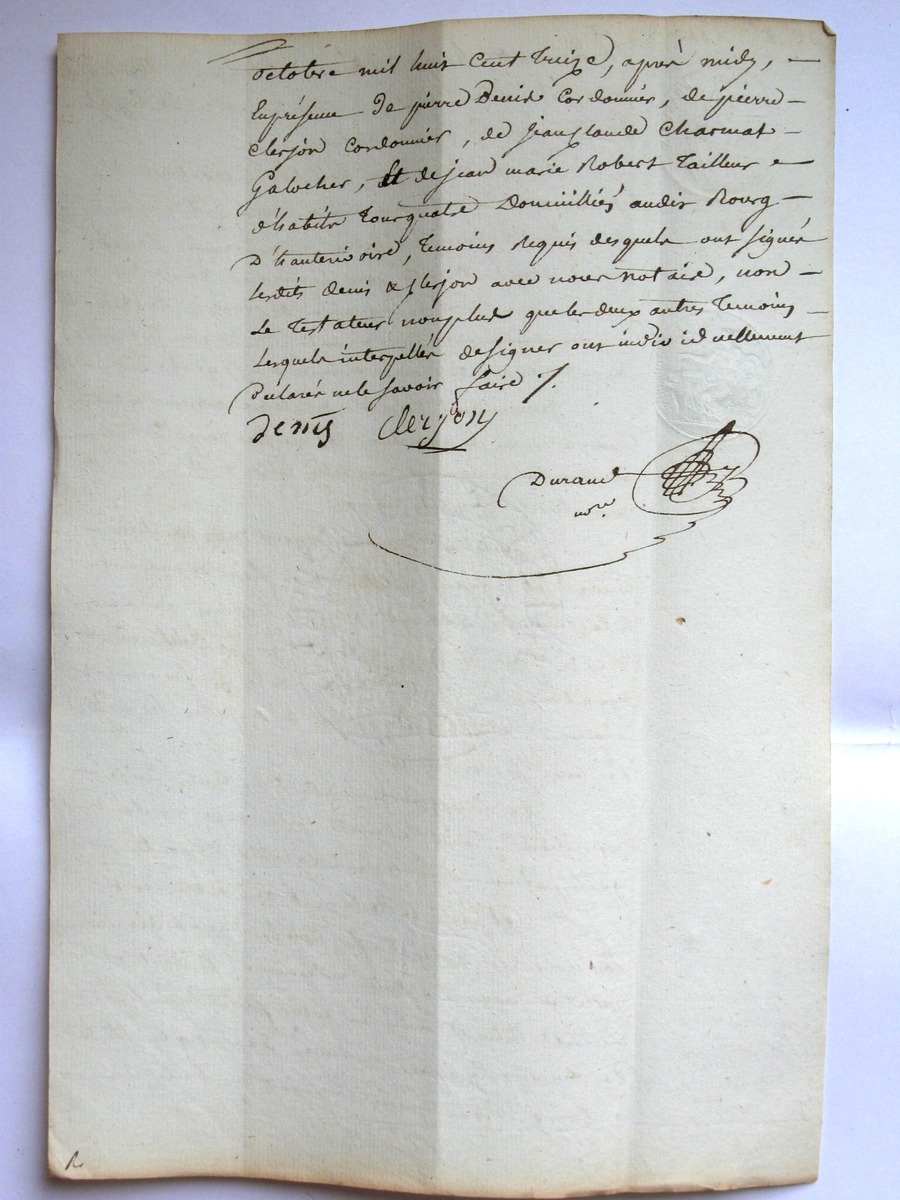 octobre mil huit cent treize, après midy, –
En présence de pierre Denis Cordonnier, de pierre –
Clerjon Cordonnier, de Jean Claude Charmat –
Galocher, Et de jean marie Robert Tailleur –
d'habits tous quatre Domiciliés audit Bourg –
D'hauterivoire, Temoins Requis desquels ont signés
lesdits denis & Clerjon avec nous notaire, non –
Le Testateur nonplus que les deux autres Temoins –
Lesquels interpellés de signer ont individuellement
Déclarés ne le savoir faire /.
denis Clerjon
Durand
nore.